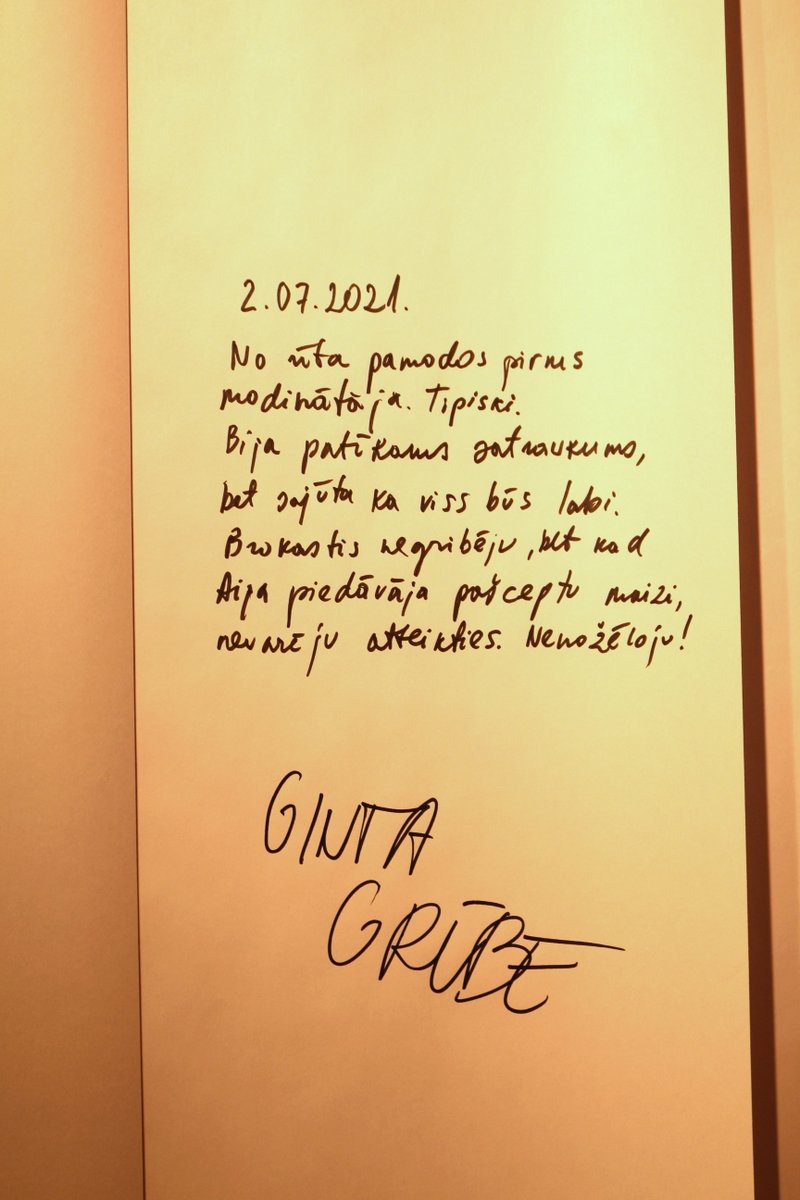 2.07.2021.
No rīta pamodos pirms
modinātāja. Tipiski.
Bija patīkams satraukums,
bet sajūta ka viss būs labi.
Brokastis negribēju, bet kad
Aija piedāvāja pašceptu maizi,
nevarēju atteikties. Nenožēloju!
GINTA
GRŪBE